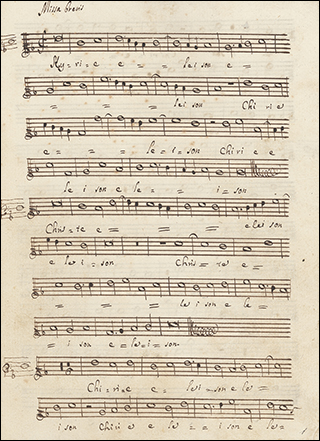 Missa brevis
Ky = ri = e e = = lei son e =
= = = lei son Chi ri e
e = = = le = i = son Chi ri e e
le i son e le = = i = son
Chris = te e = = = = e lei son
e lei = i = son Chris = te e
= = = = = le i son e le =
= i son e = le = i = son.
Chi = ri = e e = le i = son e le =
i son Chi ri e le = = i son e le =